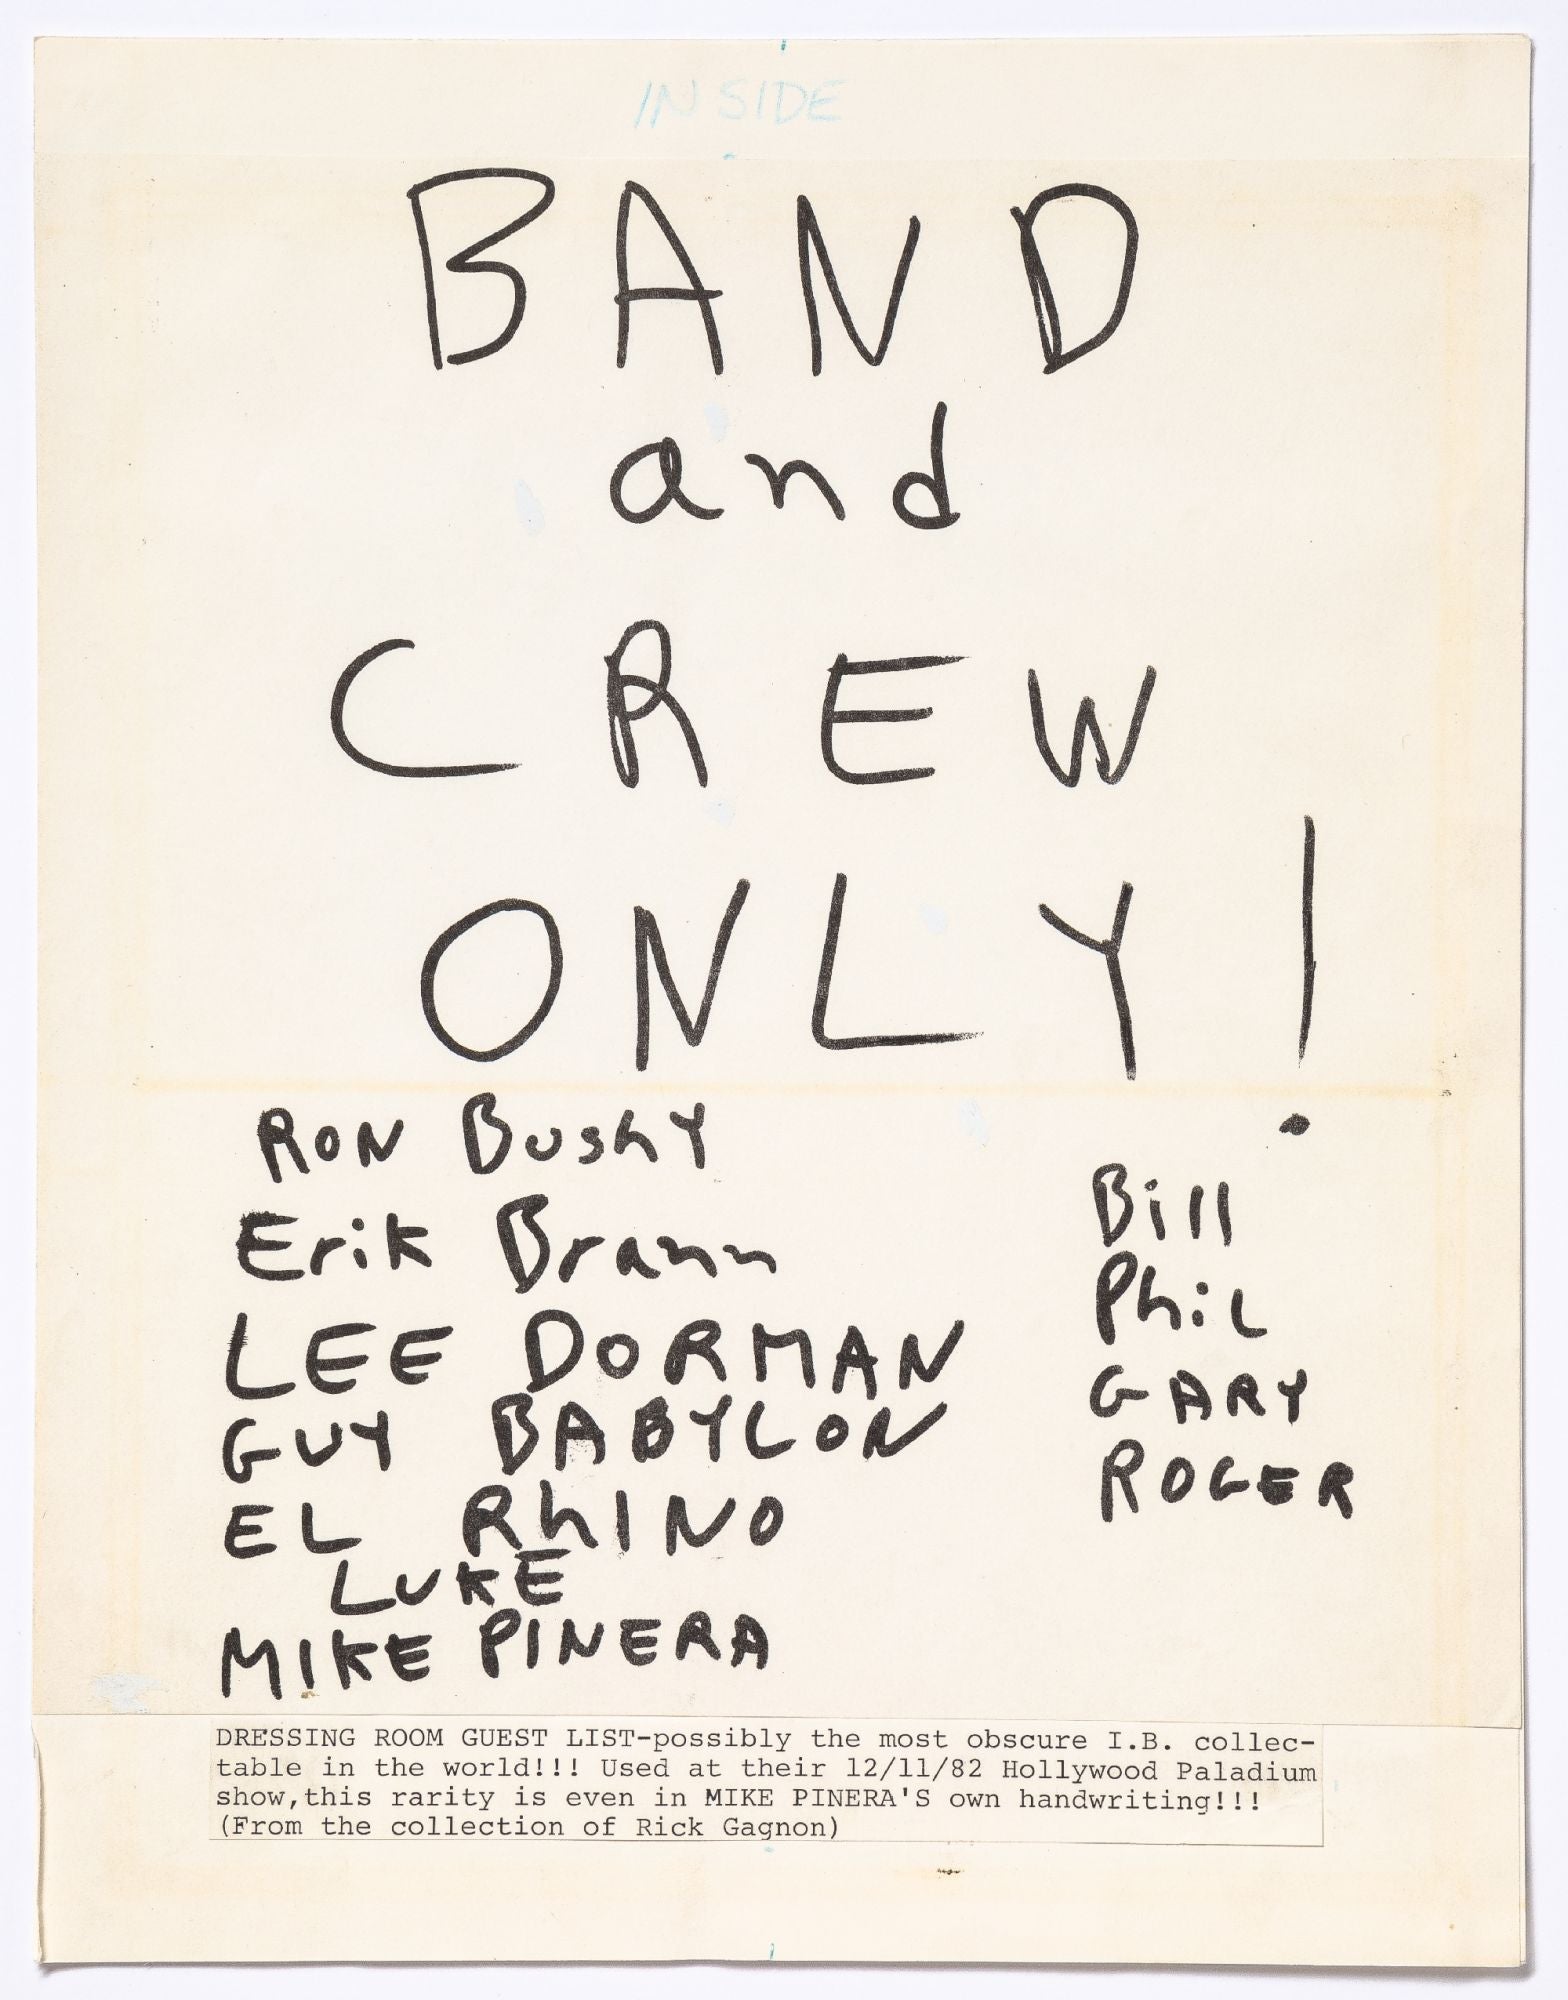 INSIDE
BAND
and
CREW
ONLY!
RON BushY
Erik Brann
LEE DORMAN
GUY BABYLON
EL RhINO
LUKE
MIKE PINERA
Bill
PhiL
GARY
ROGER
DRESSING ROOM GUEST LIST-possibly the most obscure I.B. collec-
table in the world!!! Used at their 12/11/82 Hollywood Paladium
show,this rarity is even in MIKE PINERA'S own handwriting!!!
(From the collection of Rick Gagnon)